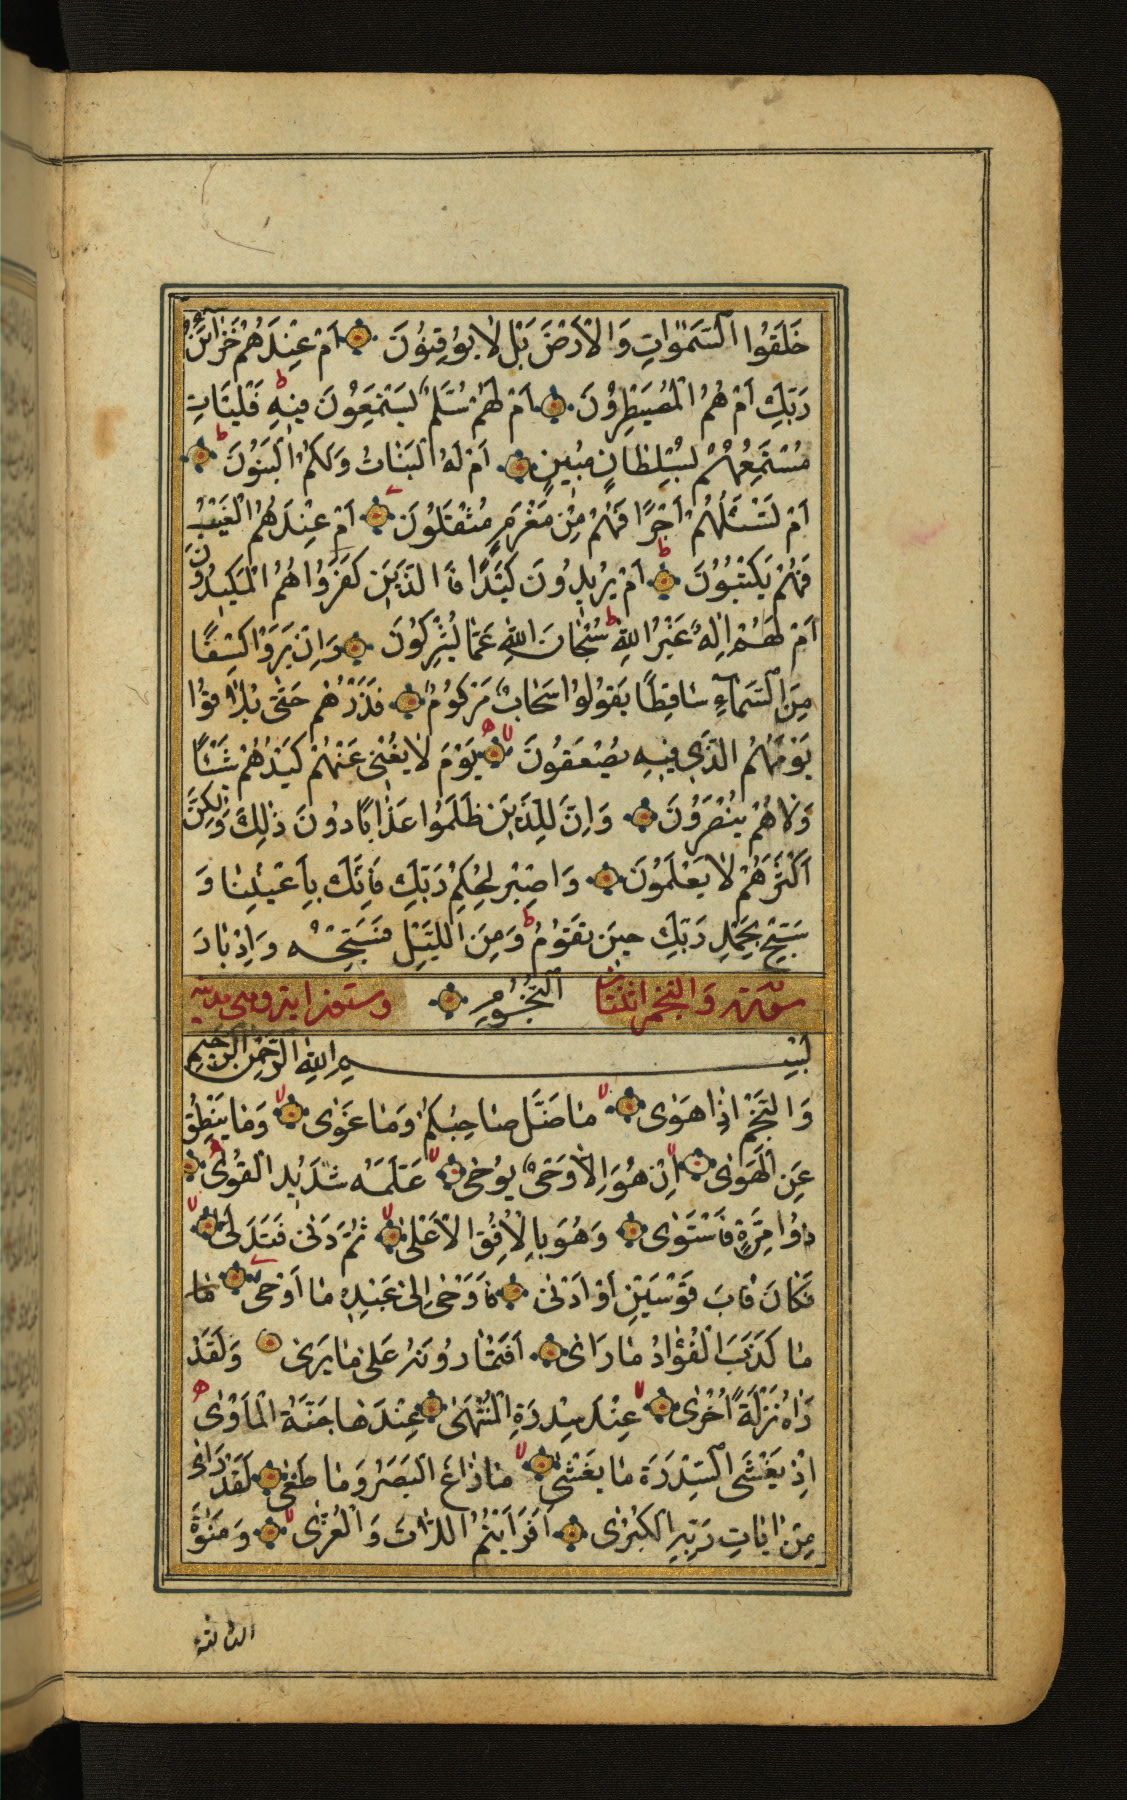 خَلَقُوا السَّمٰوَاتِ وَالْاَرْضَ بَلْ لَا يُوقِنُونَ اَمْ عِنْدَهُمْ خَزَائِنُ
رَبِّكَ اَمْ هُمُ الْمُصَيْطِرُونَ اَمْ لَهُمْ سُلَّمٌ يَسْتَمِعُونَ فِيهِ فَلْيَأْتِ
مُسْتَمِعُهُمْ بِسُلْطَانٍ مُبِينٍ اَمْ لَهُ الْبَنَاتُ وَلَكُمُ الْبَنُونَ
اَمْ تَسْئَلُهُمْ اَجْرًا فَهُمْ مِنْ مَغْرَمٍ مُثْقَلُونَ اَمْ عِنْدَهُمُ الْغَيْبُ
فَهُمْ يَكْتُبُونَ اَمْ يُرِيدُونَ كَيْدًا فَالَّذِينَ كَفَرُوا هُمُ الْمَكِيدُونَ
اَمْ لَهُمْ اِلٰهٌ غَيْرُ اللهِ سُبْحَانَ اللهِ عَمَّا يُشْرِكُونَ وَاِنْ يَرَوْا كِسْفًا
مِنَ السَّمَاءِ سَاقِطًا يَقُولُوا سَحَابٌ مَرْكُومٌ فَذَرْهُمْ حَتّٰى يُلَاقُوا
يَوْمَهُمُ الَّذِي فِيهِ يُصْعَقُونَ يَوْمَ لَا يُغْنِي عَنْهُمْ كَيْدُهُمْ شَيْئًا
وَلَا هُمْ يُنْصَرُونَ وَاِنَّ لِلَّذِينَ ظَلَمُوا عَذَابًا دُونَ ذٰلِكَ وَلٰكِنَّ
اَكْثَرَهُمْ لَا يَعْلَمُونَ وَاصْبِرْ لِحُكْمِ رَبِّكَ فَاِنَّكَ بِاَعْيُنِنَا وَ
سَبِّحْ بِحَمْدِ رَبِّكَ حِينَ تَقُومُ وَمِنَ اللَّيْلِ فَسَبِّحْهُ وَاِدْبَارَ
سورة والنجم اثنتان النُّجُومِ وستون اية وهى مدنية
بِسْمِ اللهِ الرَّحْمٰنِ الرَّحِيمِ
وَالنَّجْمِ اِذَا هَوٰى مَا ضَلَّ صَاحِبُكُمْ وَمَا غَوٰى وَمَا يَنْطِقُ
عَنِ الْهَوٰى اِنْ هُوَ اِلَّا وَحْيٌ يُوحٰى عَلَّمَهُ شَدِيدُ الْقُوٰى
ذُوا مِرَّةٍ فَاسْتَوٰى وَهُوَ بِالْاُفُقِ الْاَعْلٰى ثُمَّ دَنٰى فَتَدَلّٰى
فَكَانَ قَابَ قَوْسَيْنِ اَوْ اَدْنٰى فَاَوْحٰى اِلٰى عَبْدِهِ مَا اَوْحٰى مَا
مَا كَذَبَ الْفُؤَادُ مَا رَاٰى اَفَتُمَارُونَهُ عَلٰى مَا يَرٰى وَلَقَدْ
رَاٰهُ نَزْلَةً اُخْرٰى عِنْدَ سِدْرَةِ الْمُنْتَهٰى عِنْدَهَا جَنَّةُ الْمَاْوٰى
اِذْ يَغْشَى السِّدْرَةَ مَا يَغْشٰى مَا زَاغَ الْبَصَرُ وَمَا طَغٰى لَقَدْ رَاٰى
مِنْ اٰيَاتِ رَبِّهِ الْكُبْرٰى اَفَرَاَيْتُمُ اللَّاتَ وَالْعُزّٰى وَمَنٰوةَ
الثالثة